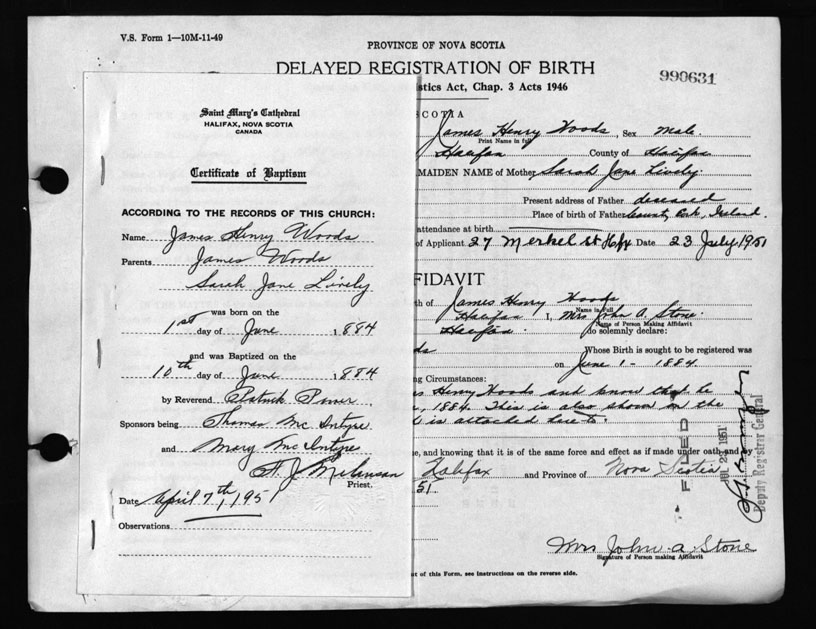 V.S. Form 1—10M-11-49
PROVINCE OF NOVA SCOTIA
DELAYED REGISTRATION OF BIRTH
990631
istics Act, Chap. 3 Acts 1946
Saint Mary's Cathedral
HALIFAX, NOVA SCOTIA
CANADA
Certificate of Baptism
ACCORDING TO THE RECORDS OF THIS CHURCH:
Name James Henry Woods
Parents James Woods
Sarah Jane Lively
was born on the
1st day of June 1884
and was Baptized on the
10th day of June 1884
by Reverend Patrick Power
Sponsors being Thomas McIntyre
and Mary McIntyre
Priest.
Date April 7th, 195
Observations
SCOTIA
James Henry Woods, Sex male.
Print Name in full
Halifax County of Halifax
MAIDEN NAME of Mother Sarah Jane Lively.
Present address of Father deseased
Place of birth of Father County Cork, Ireland.
attendance at birth
of Applicant 27 Merkel St Hfx Date 23 July 1951
FIDAVIT
th of James Henry Woods
Name in Full
Halifax I, Mrs John A. Stone
Name of Person Making Affidavit
Halifax. do solemnly declare:
ds Whose Birth is sought to be registered was
on June 1 - 1884.
ng Circumstances:
s Henry Woods and know that he
, 1884. This is also shown on the
t is attached here to.
e, and knowing that it is of the same force and effect as if made under oath and by
Halifax and Province of Nova Scotia
51
FILED
JUL 27 1951
Deputy Registrar General
Mrs John A Stone
Signature of Person making Affidavit
ut of this Form, see instructions on the reverse side.